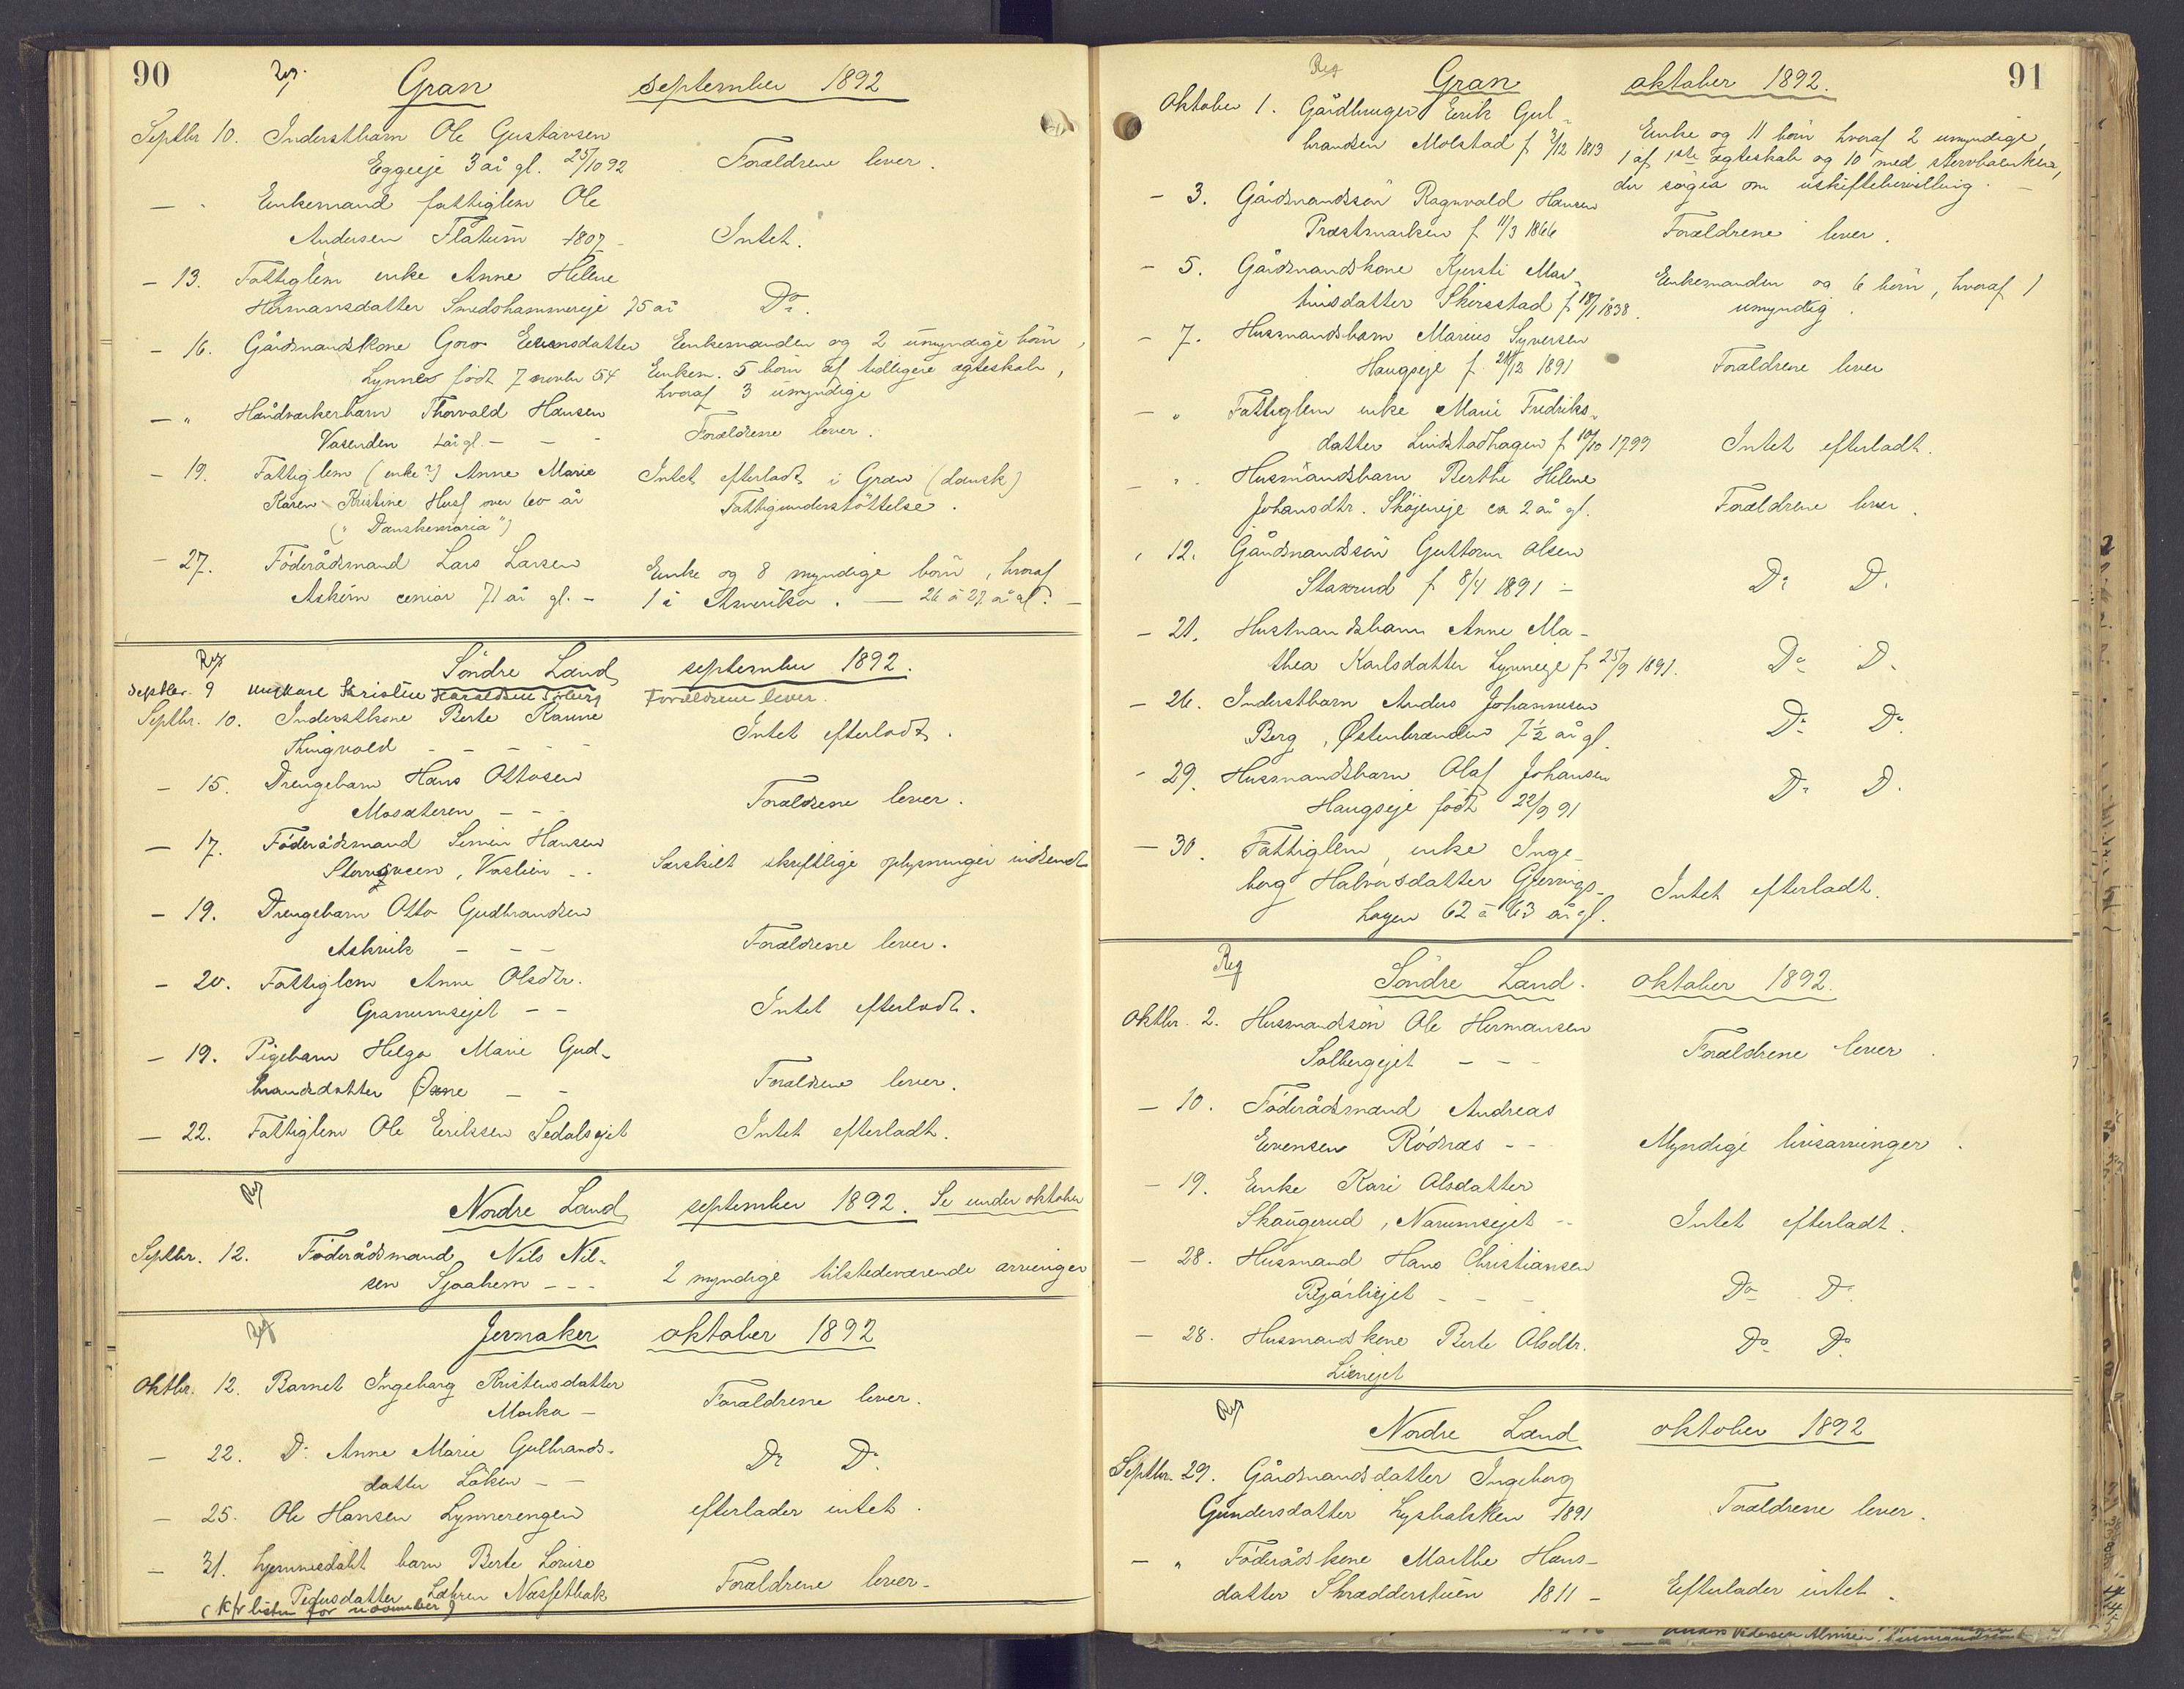 90
Reg.
Gran september 1892
Septbr 10. Inderstbarn Ole Gustavsen
Eggeeje 3 år gl. 25/10 92 Forældrene lever.
— " Enkemand fattiglem Ole
Andersen Flatum 1807 - Intet.
— 13. Fattiglem enke Anne Helene
Hermansdatter Smedshammereje 75 år Do.
— 16. Gårdmandskone Goro Evensdatter Enkemanden og 2 umyndige börn,
Lynnes födt 7 novbr 54 Enkem. 5 börn af tidligere ægteskab,
hvoraf 3 umyndige
— " Håndværkerbarn Thorvald Hansen
Vasenden 1 år gl. - - - Forældrene lever.
— 19. Fattiglem (enke?) Anne Marie Intet efterladt i Gran (dansk)
Karen Kristine Husf over 60 år Fattigunderstöttelse.
("Danskemaria")
— 27. Föderådsmand Lars Larsen Enke og 8 myndige börn, hvoraf
Askim senior 71 år gl. - 1 i Amerika. — 26 à 27 år gl. —
Reg
Söndre Land september 1892.
Septbr. 9 Ungkarl Kristian Haraldsen Forældrene lever.
Septbr. 10. Inderstkone Berte Karine
Thingvold - - - - - Intet efterladt.
— 15. Drengebarn Hans Ottosen
Mosæteren - - Forældrene lever.
— 17. Föderådsmand Simen Hansen
Vestlien - - Særskilt skriftlige oplysninger indsendt
— 19. Drengebarn Otto Gudbrandsen
Askvik - - - Forældrene lever.
— 20. Fattiglem Anne Olsdtr.
Granumsejet - - Intet efterladt.
— 19. Pigebarn Helga Marie Gud-
brandsdatter Øxne - - Forældrene lever.
— 22. Fattiglem Ole Eriksen Sedalsejet Intet efterladt.
Reg
Nordre Land september 1892. Se under oktober
Septbr. 12. Föderådsmand Nils Nil-
sen Sjaahem - - - 2 myndige tilstedeværende arvinger
Reg
Jevnaker oktober 1892
Oktbr. 12. Barnet Ingeborg Kristensdatter
Moka - Forældrene lever.
— 22. Do Anne Marie Gulbrands-
datter Löken - - Do Do
— 25. Ole Hansen Lynnerengen efterlader intet.
— 31. hjemmedöbt barn Berte Lovise
Pedersdatter Læhren Næssetbak Forældrene lever -
(Kfr listen for november)
91
Reg
Gran oktober 1892.
Oktober 1. Gårdbruger Erik Gul-
brandsen Molstad f 3/12 1813 Enke og 11 börn hvoraf 2 umyndige,
1 af 1ste ægteskab og 10 med stervboenken,
der söger om uskiftebevilling. —
— 3. Gårdmandssön Ragnvald Hansen
Præstmarken f 11/3 1866 Forældrene lever.
— 5. Gårdmandskone Kjersti Mar-
tinsdatter Skirstad f 18/1 1838. Enkemanden og 6 börn, hvoraf 1
umyndig.
— 7. Husmandsbarn Marius Syversen
Haugseje f. 21/12 1891 Forældrene lever
— " Fattiglem enke Marie Fredriks-
datter Lindstadhagen f 10/10 1799 Intet efterladt.
— " Husmandsbarn Berthe Helene
Johansdtr. Sköjeneje ca 2 år gl. Forældrene lever.
— 12. Gårdmandssön Guttorm Olsen
Staxrud f 8/4 1891 — Do Do
— 21. Husmandsbarn Anne Ma-
thea Karlsdatter Lynneeje f 25/9 1891. Do Do
— 26. Inderstbarn Anders Johannesen
Berg, Østenbranden 7½ år gl. Do Do
— 29. Husmandsbarn Olaf Johansen
Haugseje födt 22/9 91 Do Do
— 30. Fattiglem, enke Inge-
borg Halvorsdatter Gjervigs-
hagen 62 à 63 år gl. Intet efterladt.
Reg
Söndre Land. oktober 1892.
Oktbr. 2. Husmandssön Ole Hermansen
Solbergejet - - - Forældrene lever.
— 10. Föderådsmand Andreas
Evensen Rödnæs - - Myndige livsarvinger.
— 19. Enke Kari Olsdatter
Skaugerud, Narumsejet - - Intet efterladt.
— 28. Husmand Hans Christiansen
Bjärliejet - - - Do Do
— 28. Husmandskone Berte Olsdtr.
Lienejet Do Do
Reg
Nordre Land oktober 1892
Septbr. 29. Gårdmandsdatter Ingeborg
Gundersdatter Lyshalsken 1891 Forældrene lever.
— " Föderådskone Marthe Hans-
datter Skrædderstuen 1811 - Efterlader intet.